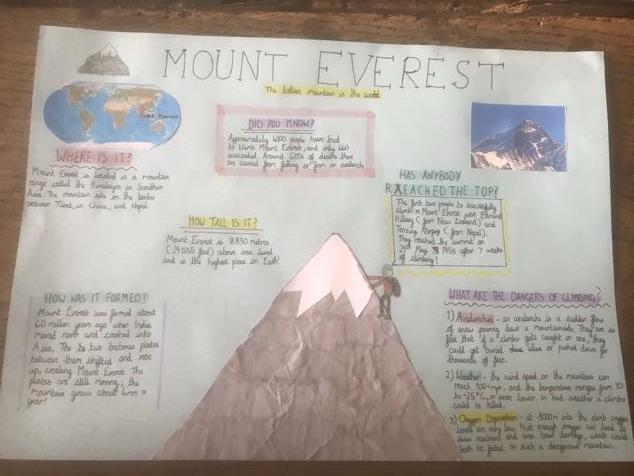 MOUNT EVEREST
The tallest mountain in the world.
Mt. Everest
WHERE IS IT?
Mount Everest is located in a mountain
range called the Himalayas in Southern
Asia. The mountain sits on the border
between Tibet, in China, and Nepal.
DID YOU KNOW?
Approximately 4000 people have tried
to climb Mount Everest, and only 660
succeeded. Around of deaths there
are caused from falling or from an avalanche.
HAS ANYBODY
REACHED THE TOP?
The first two people to successfully
climb Mount Everest were Edmund
Hillary (from New Zealand) and
Tenzing Norgay (from Nepal).
They reached the summit on
29th May 1953 after 7 weeks
of climbing!
HOW TALL IS IT?
Mount Everest is 8850 metres
(29035 feet) above sea level
and is the highest place on Earth!
HOW WAS IT FORMED?
Mount Everest was formed about
60 million years ago when India
moved north and crashed into
Asia. The two tectonic plates
between them shifted and rose
up, creating Mount Everest. The
plates are still moving; the
mountain grows about 4mm a
year!
WHAT ARE THE DANGERS OF CLIMBING?
1) Avalanches - an avalanche is a sudden flow
of snow pouring down a mountainside. They are so
fast that if a climber gets caught in one, they
could get buried alive or pushed down for
thousands of feet.
2) Weather - the wind speed on the mountain can
reach 100+mph, and the temperature ranges from
to -25°C, or even lower. In bad weather a climber
could be killed.
3) Oxygen Deprivation - at 8000m into the climb oxygen
levels are very low. Not enough oxygen can lead to
slow reactions and even brain damage, which could
both be fatal on such a dangerous mountain.